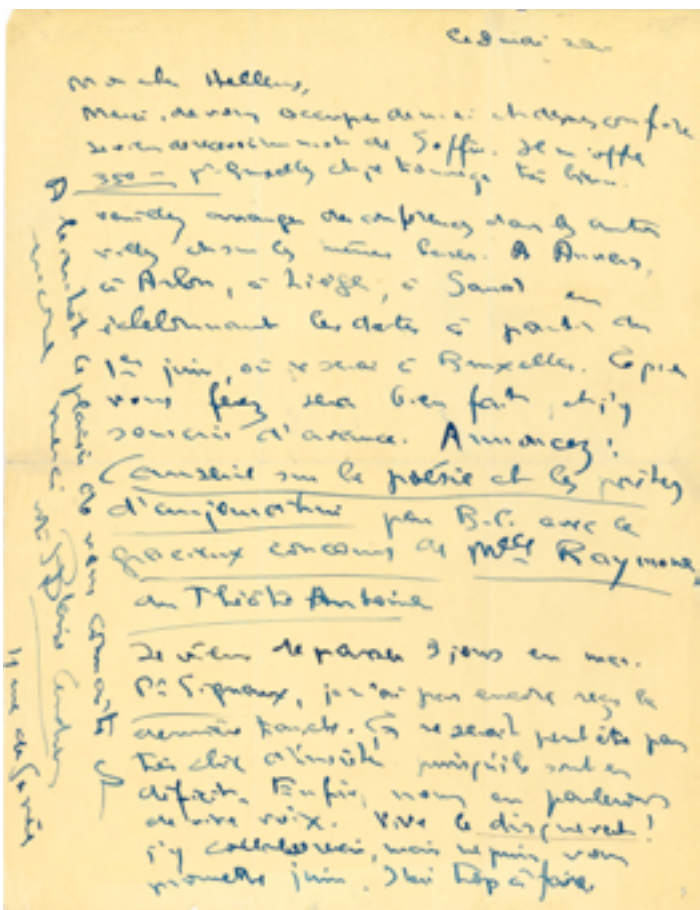 Mon cher Hellens,
Merci, de vous occuper de moi et de mes conf.
Je viens de recevoir un mot de Goffin. Je m'offre
350 — pr Bruxelles et je trouve très bien.
veuillez arranger des conférences dans les autres
villes et sur les mêmes bases. A Anvers,
à Arlon, à Liège, à Gand en
échelonnant les dates à partir du
1er juin, où je serai à Bruxelles. Ce que
vous ferez sera bien fait, et j'y
souscris d'avance. Annoncez :
Causerie sur la poésie et les poètes
d'aujourd'hui par B.C. avec le
gracieux concours de Melle Raymone
du Théâtre Antoine
Je viens de passer 9 jours en mer.
Pr Signaux, je n'ai pas encore reçu la
dernière tranche. Ce ne serait peut-être pas
très chic d'insister puisqu'ils sont en
déficit. Enfin, nous en parlerons
de vive voix. Vive le disque vert !
j'y collaborerai, mais ne puis vous
promettre juin. J'ai trop à faire
A bientôt le plaisir de vous connaître et
encore merci
Blaise Cendrars